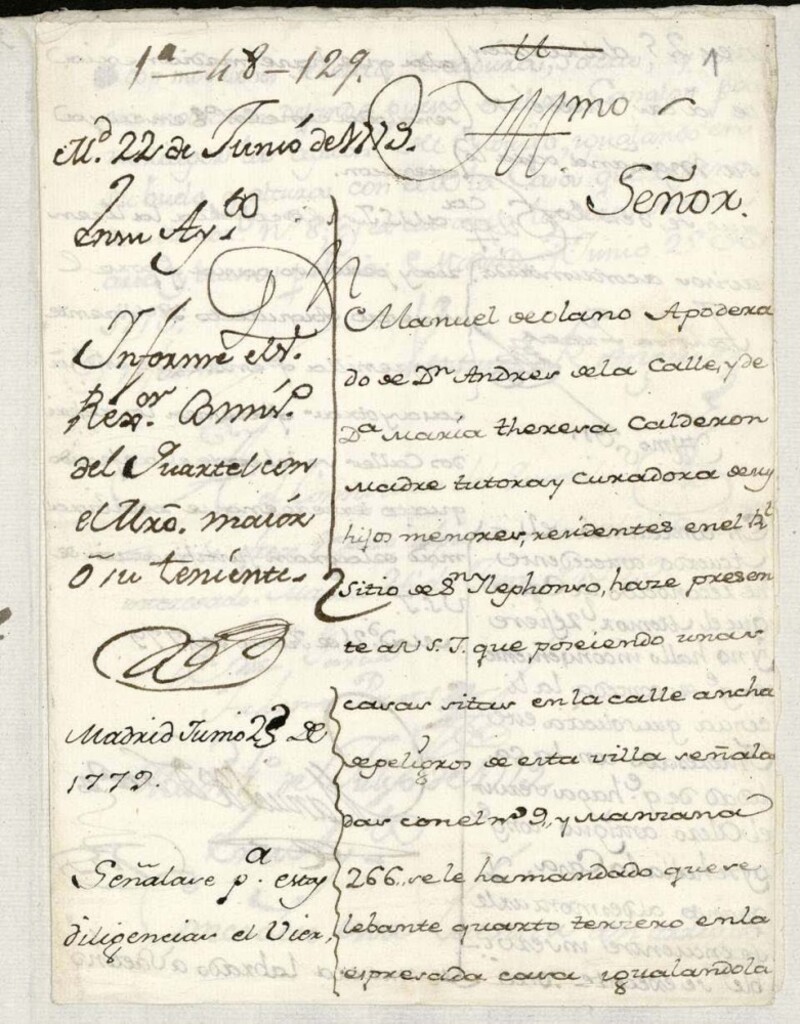 1ª-48-129.
1
M.d 22 de Junio de 1779.
Yllmo
Señor.
en su Ay.to
Informe el S.r
Rex.or Comis.o
del Quartel con
el Mro. maior
o su teniente.
Madrid Junio 23 de
1779.
Señalase p.a estas
diligencias el Vier,
Manuel de olano Apodera
do de Dn Andres de la Calle, y de
Da María theresa Calderon
Madre tutora y Curadora de sus
hijos menores, residentes en el Rl
sitio de Sn Ylephonso, haze presen
te a V.S.I. que poseiendo unas
casas sitas en la calle ancha
de peligros de esta villa señala
das con el no 9, y Manzana
266, se le ha mandado que se
lebante quarto terzero en la
espresada casa ygualandola